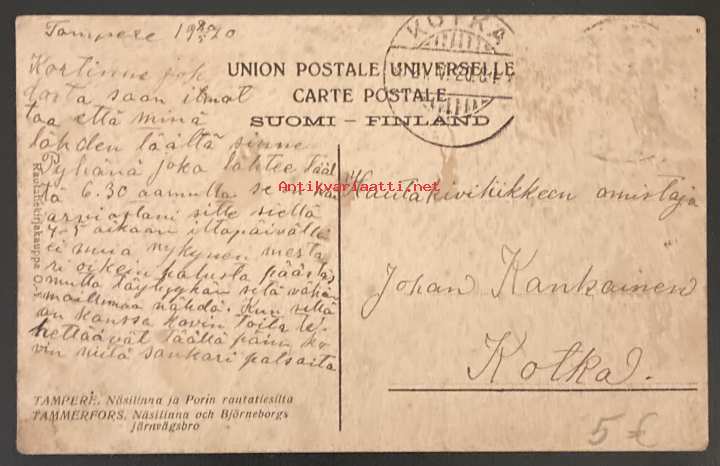 Tampere 19 20/5 20
Kortinne joh
dosta saan ilmot
taa että minä
lähden täältä sinne
Pyhänä joka lähtee tääl
tä 6.30 aamulla se
sitte sieltä
4-5 aikaan iltapäivällä
ei muia nykynen mesta
ri oikein palusta päästää
mutta täytyyhän sitä vähän
maailmaa nähdä. Kun sillä
on kanssa kovin toita te
hettäävät täältä päin ko
vin niitä sankari patsaita
Rautatiekirjakauppa O.Y.
UNION POSTALE UNIVERSELLE
CARTE POSTALE
SUOMI - FINLAND
KOTKA
Antikvariaatti.net
Hautakiviliikkeen omistaja
Johan Kankainen
Kotka.
TAMPERE. Näsilinna ja Porin rautatiesilta
TAMMERFORS. Näsilinna och Björneborgs
järnvägsbro
5 €